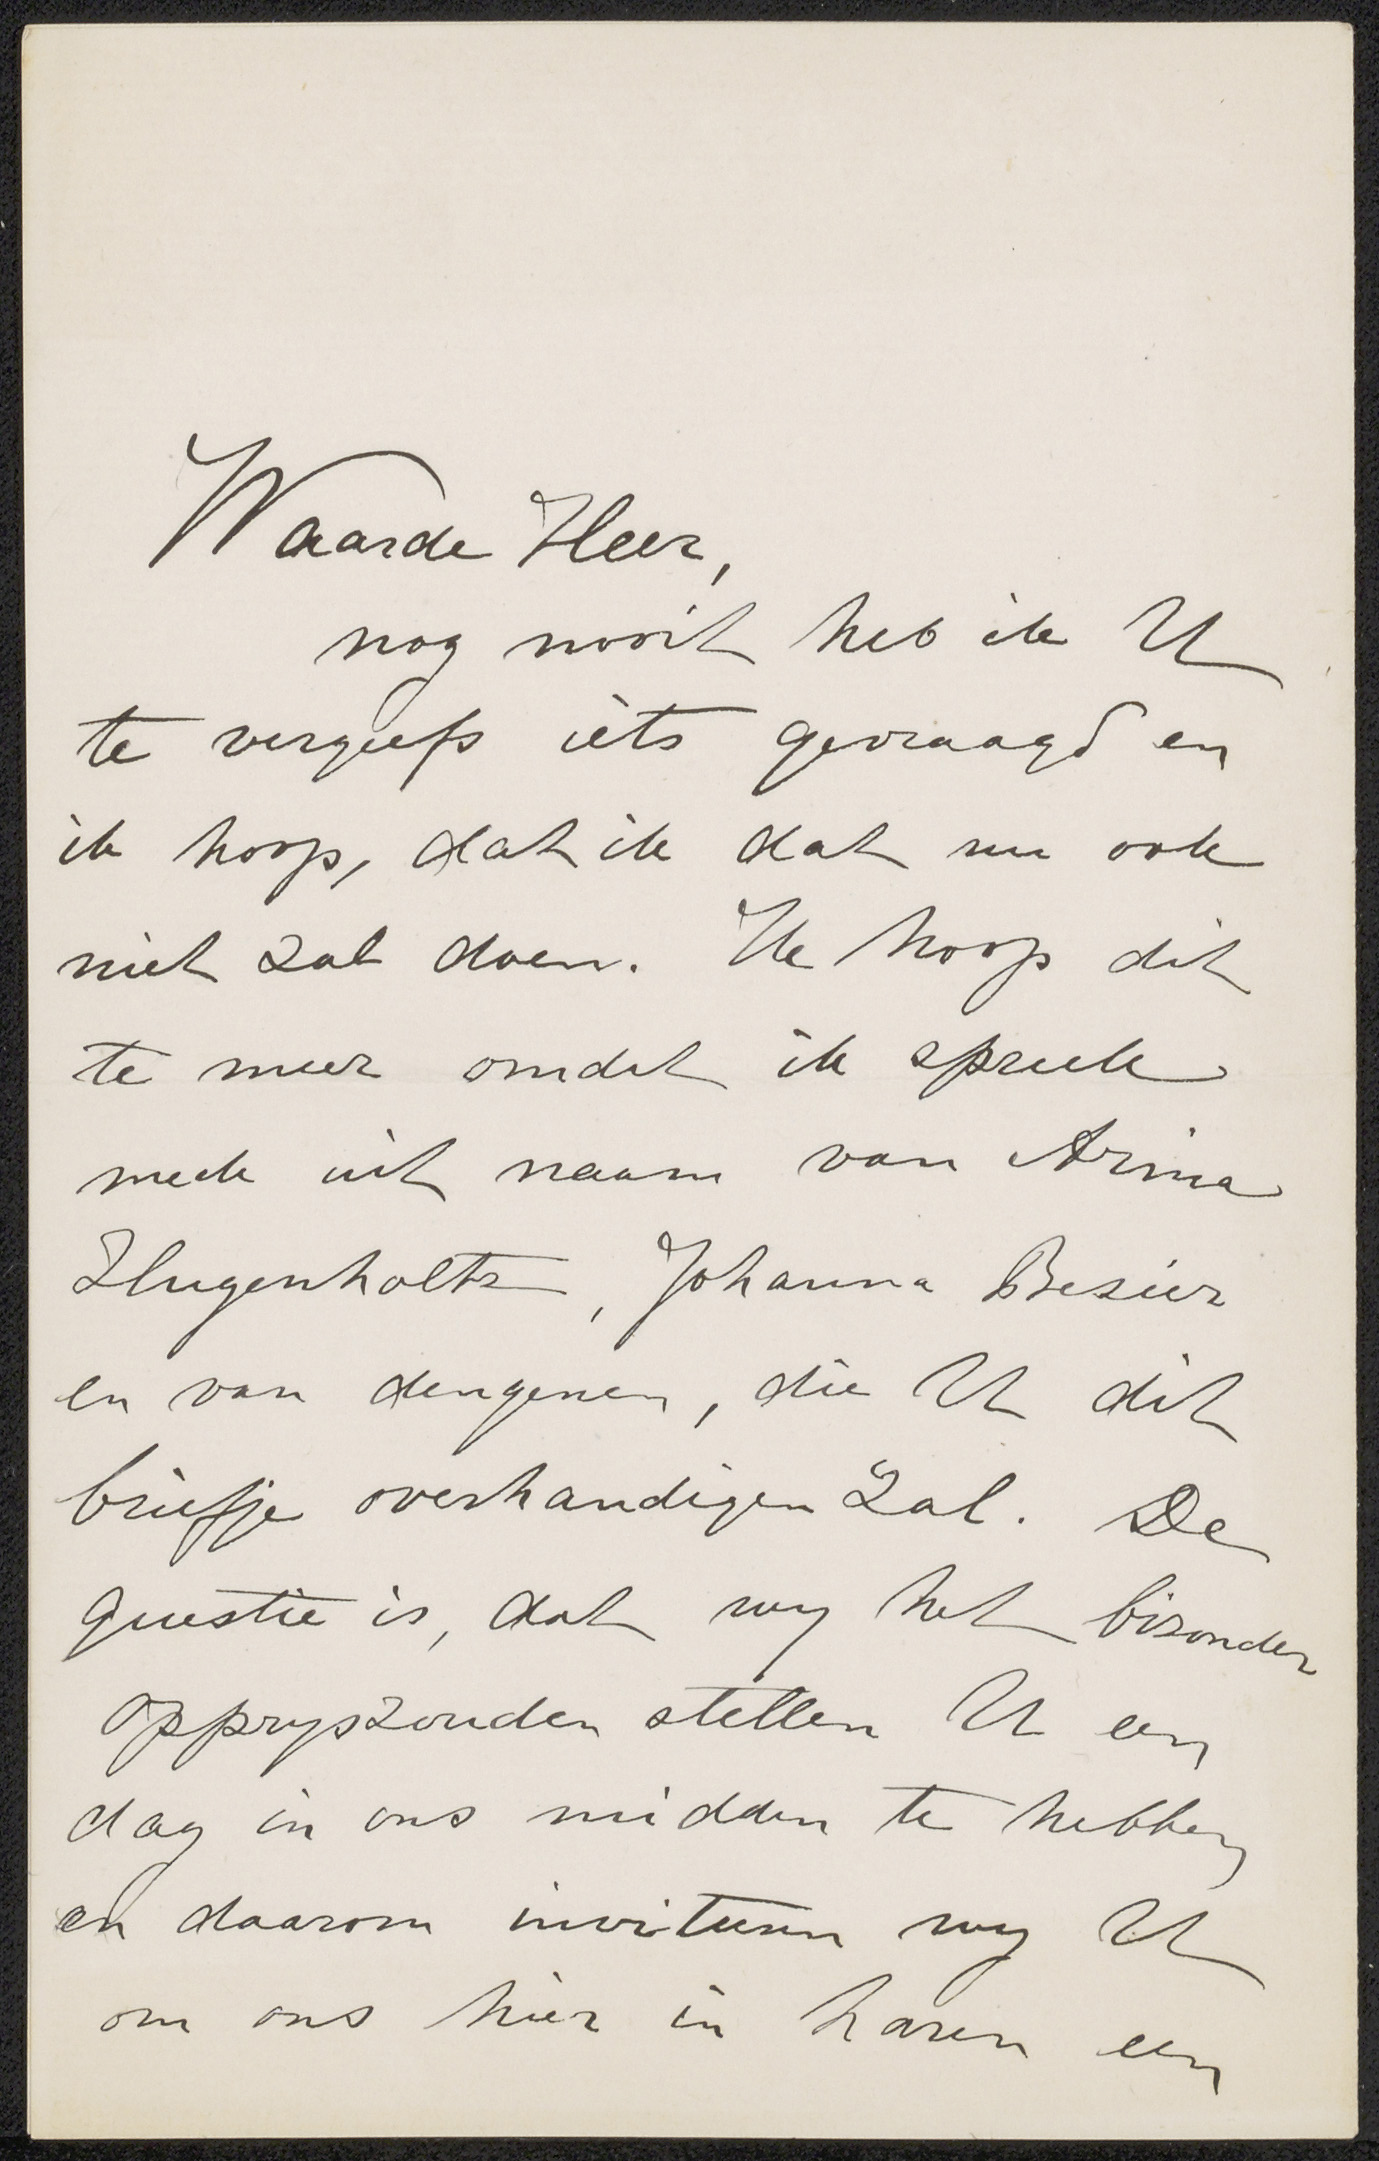 Waarde Heer,
nog nooit heb ik U
te vergeefs iets gevraagd en
ik hoop, dat ik dat nu ook
niet zal doen. Ik hoop dit
te meer omdat ik spreek
mede uit naam van Arina
Hugenholtz, Johanna Besier
en van dengenen, die U dit
briefje overhandigen zal. De
questie is, dat wy het bizonder
oppryszouden stellen U een
dag in ons midden te hebben
en daarom inviteeren wy U
om ons hier in haren een